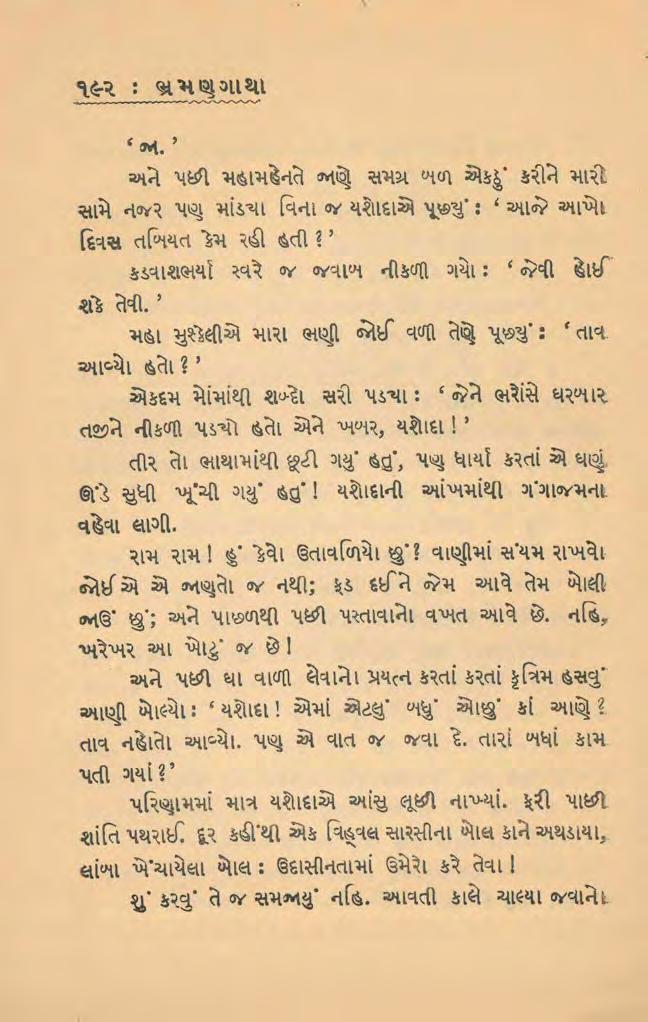 ૧૯૨ : ભ્રમણગાથા
‘ જા. ’
અને પછી મહામહેનતે જાણે સમગ્ર બળ એકઠું કરીને મારી
સામે નજર પણ માંડ્યા વિના જ યશોદાએ પૂછ્યું : ‘ આજે આખો
દિવસ તબિયત કેમ રહી હતી ? ’
કડવાશભર્યા સ્વરે જ જવાબ નીકળી ગયો : ‘ જેવી હોઈ
શકે તેવી. ’
મહા મુશ્કેલીએ મારા ભણી જોઈ વળી તેણે પૂછ્યું : ‘ તાવ
આવ્યો હતો ? ’
એકદમ મોંમાંથી શબ્દો સરી પડ્યા : ‘ જેને ભરોંસે ઘરબાર
તજીને નીકળી પડ્યો હતો એને ખબર, યશોદા ! ’
તીર તો ભાથામાંથી છૂટી ગયું હતું, પણ ધાર્યા કરતાં એ ઘણું
ઊંડે સુધી ખૂંચી ગયું હતું ! યશોદાની આંખમાંથી ગંગાજમના
વહેવા લાગી.
રામ રામ ! હું કેવો ઉતાવળિયો છું ? વાણીમાં સંયમ રાખવો
જોઈએ એ જાણતો જ નથી; ફડ દઈને જેમ આવે તેમ બોલી
જાઉં છું; અને પાછળથી પછી પસ્તાવાનો વખત આવે છે. નહિ,
ખરેખર આ ખોટું જ છે !
અને પછી ઘા વાળી લેવાનો પ્રયત્ન કરતાં કરતાં કૃત્રિમ હસવું
આણી બોલ્યો : ‘ યશોદા ! એમાં એટલું બધું ઓછું કાં આણે ?
તાવ નહોતો આવ્યો. પણ એ વાત જ જવા દે. તારાં બધાં કામ
પતી ગયાં ? ’
પરિણામમાં માત્ર યશોદાએ આંસુ લૂછી નાખ્યાં. ફરી પાછી
શાંતિ પથરાઈ. દૂર કહીંથી એક વિહ્વલ સારસીના બોલ કાને અથડાયા,
લાંબા ખેંચાયેલા બોલ : ઉદાસીનતામાં ઉમેરો કરે તેવા !
શું કરવું તે જ સમજાયું નહિ. આવતી કાલે ચાલ્યા જવાનો